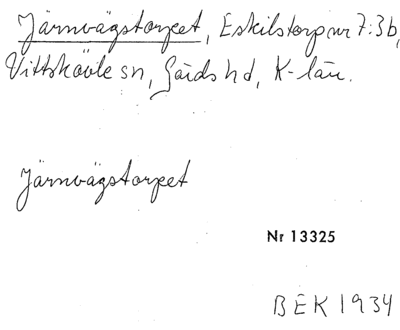 Järnvägstorpet, Eskilstorp nr 7:3b,
Vittskövle sn, Gärds hd, K-län.
Järnvägstorpet
Nr 13325
BEK 1934